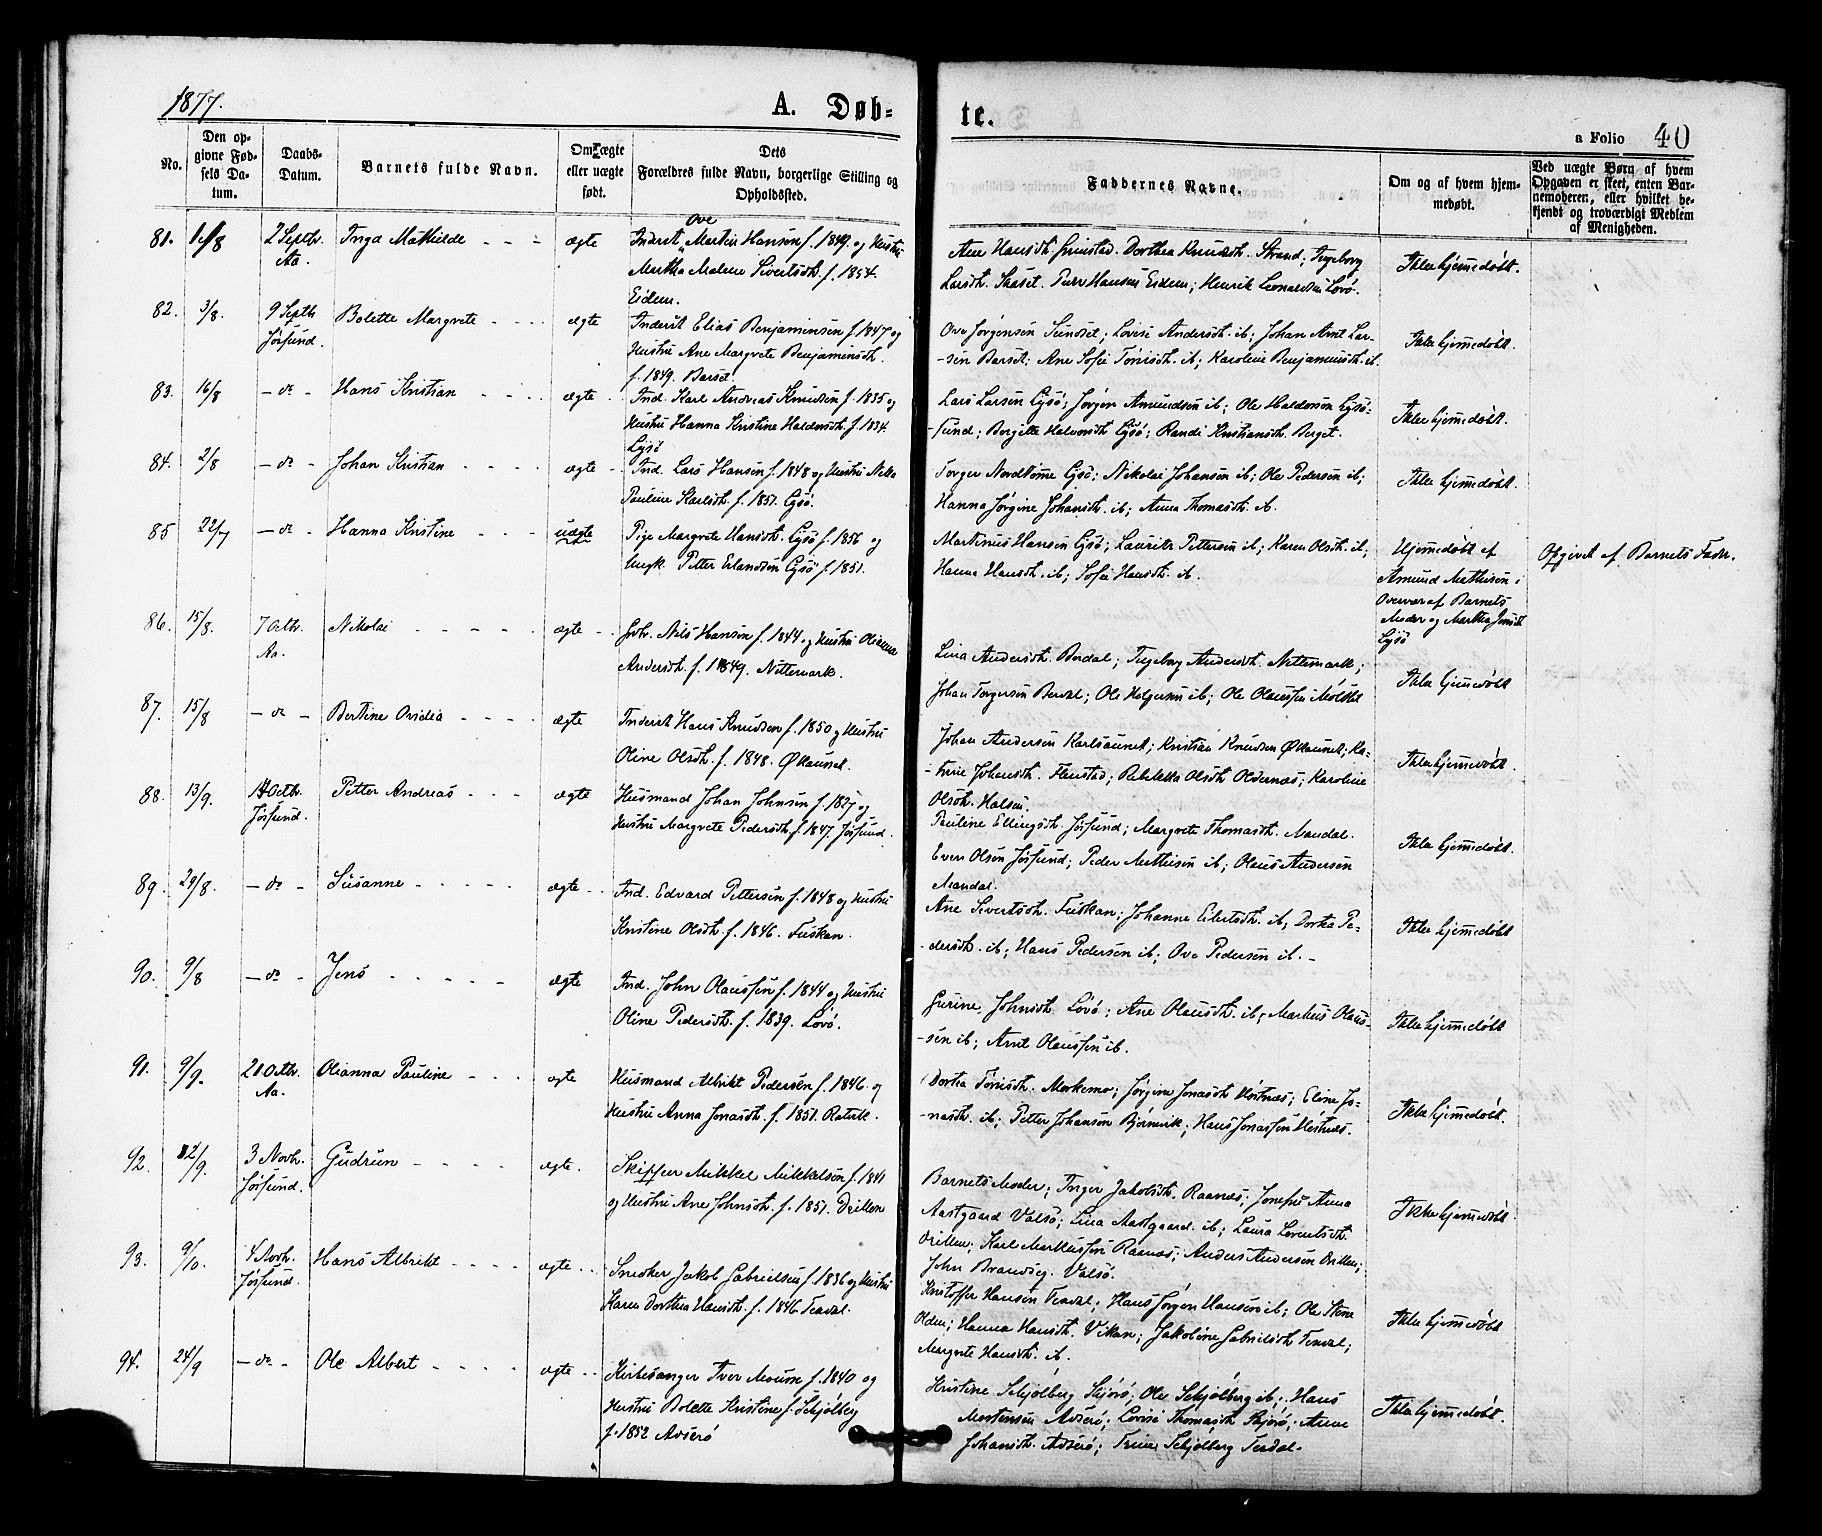 1877.
A. Døb-
te.
a Folio 40
No.
Den op-
givne Fød-
sels Da-
tum.
Daabs-
Datum.
Barnets fulde Navn.
Om ægte
eller uægte
født.
Dets
Forældres fulde Navn, borgerlige Stilling og
Opholdssted.
Faddernes Navne.
Om og af hvem hjem-
medøbt.
Ved uægte Børn af hvem
Opgaven er skeet, enten Bar-
nemoderen, eller hvilket be-
kjendt og troværdigt Medlem
af Menigheden.
81. 1/8 2 Septbr. Aa. Inga Mathilde - - - ægte
Ove
Inderst Martin Hansen f. 1849. og Hustru
Martha Malene Sivertsdt. f. 1854.
Eidem.
Ane Hansdt. Grinstad. Dorthea Knudsdt. Strand; Ingeborg
Larsdt. Skaset. Peder Hansen Eidem; Henrik Leonardsen Lovø.
Ikke hjemmedøbt.
82. 3/8. 9 Septb. Jøssund. Bolette Margrete - - - ægte
Inderst Elias Benjaminsen f. 1847 og
Hustru Ane Margrete Benjaminsdt.
f. 1849. Barset.
Ove Jørgensen Sundset; Lovise Andersdt. ib; Johan Arnt Lar-
-sen Barset; Ane Sofie Tønisdt. ib; Karoline Benjaminsdt. ib.
Ikke hjemmedøbt.
83. 16/8 - do - Hans Kristian - - - ægte -
Ind. Karl Andreas Knudsen f. 1835 og
Hustru Hanna Kristine Haldorsdt. f. 1834.
Lysø
Lars Larsen Lysø; Jørgen Amundsen ib; Ole Haldorsen Lysø-
-sund; Bergitte Halvorsdt. Lysø; Randi Kristiansdt. Berget.
Ikke hjemmedøbt.
84. 2/8 - do - Johan Kristian - - - ægte -
Ind. Lars Hansen f. 1848 og Hustru
Pauline Karlsdt. f. 1851. Lysø.
Torger Nordtømme Lysø; Nikolai Johansen ib; Ole Pedersen ib;
Hanna Jørgine Johansdt. ib; Anna Thomasdt. ib.
Ikke hjemmedøbt.
85 22/7 - do - Hanna Kristine - - - uægte
Pige Margrete Hansdt. Lysø f. 1856 og
Ungk. Petter Erlandsen Lysø f. 1851.
Martinus Hansen Lysø; Lauritz Pettersen ib; Karen Olsdt. ib;
Hanna Hansdt. ib; Sofie Hansdt. ib.
Hjemmedøbt af
Amund Mathisen i
Overvær af Barnets
Moder og Martha
Lysø
Opgivet af Barnets Fader.
86. 15/8. 7 Octbr. Aa. Nikolai - - - - - ægte - -
Nils Hansen f. 1844 og Hustru Olianna
Andersdt. f. 1849. Nittemark.
Lina Andersdt. Berdal; Ingeborg Andersdt. Nittemark;
Johan Torgersen Berdal; Ole Helgesen ib; Ole Olaussen
Ikke hjemmedøbt
87. 15/8 - do - Bertine Ovidia - - - - ægte
Inderst Hans Knudsen f. 1850 og Hustru
Oline Olsdt. f. 1848. Øklaunet.
Johan Andersen Karlsaunet; Kristian Knudsen Øklaunet; Ka-
-trine Johansdt. Harstad; Rebekka Olsdt. Oldernæs; Karoline
Olsdt. Halsen.
Ikke hjemmedøbt.
88. 13/9. 14 Octbr. Jøssund. Petter Andreas - - - ægte
Husmand Johan Johnsen f. 1827 og
Hustru Margrete Pedersdt. f. 1847. Jøssund.
Pauline Ellingsdt. Jøssund; Margrete Thomasdt. Mandal.
Even Olsen Jøssund; Peder Mathisen ib; Olaus Andersen
Mandal.
Ikke hjemmedøbt.
89. 29/8. - do - Susanne - - - - - ægte - -
Ind. Edvard Pettersen f. 1848 og Hustru
Kristine Olsdt. f. 1846. Fuskan.
Ane Sivertsdt. Fuskan; Johanne Eilertsdt. ib; Dorthea Pe-
-dersdt. ib; Hans Pedersen ib; Ove Pedersen ib. -
Ikke hjemmedøbt
90. 9/8 - do - Jens - - - - - ægte
Ind. John Olaussen f. 1844 og Hustru
Oline Pedersdt. f. 1839. Lovø.
Gurine Johnsdt. Lovø; Ane Olausdt. ib; Markus Olaus-
-sen ib; Arnt Olaussen ib.
Ikke hjemmedøbt
91. 9/9. 21 Octbr. Aa. Olianna Pauline - - - ægte
Husmand Albrikt Pedersen f. 1846 og
Hustru Anna Jonasdt. f. 1851. Ratvik.
Dorthea Tønisdt. Morkemo; Jørgine Jonasdt. Høstnæs; Eline Jo-
-nasdt. ib; Petter Johansen Bjørnvik; Hans Jonassen Høstnæs.
Ikke hjemmedøbt.
92. 12/9. 3 Novbr. Jøssund. Gudrun - - - - ægte.
Skipper Mikkel Mikkelsen f. 1841
og Hustru Ane Johnsdt. f. 1851. Drillen
Barnets Moder; Inger Jakobsdt. Raanæs; Josefie Anna
Aastgaard Valsø; Lina Aastgaard. ib; Laura Lorentsdt.
Drillen; Karl Markussen Raanæs; Anders Andersen Drillen;
John Brandseg. Valsø.
Ikke hjemmedøbt.
93. 9/10. 4 Novbr. Jøssund. Hans Albrikt - - - - ægte - -
Snedker Jakob Gabrielsen f. 1836 og Hustru
Karen Dorthea Hansdt. f. 1846 Teksdal.
Kristoffer Hansen Teksdal; Hans Jørgen Hansen ib; Ole Stene
Olden; Hanna Hansdt. Vikan; Jakobine Gabrielsdt. Teksdal;
Margrete Hansdt. ib.
Ikke hjemmedøbt
94. 24/9 - do - Ole Albert - - - - ægte - -
Kirkesanger Iver Moum f. 1840 og
Hustru Bolette Kristine f. Schjølberg
f. 1852 Asserø
Kristine Schjølberg Skjørø; Ole Schjølberg ib; Hans
Mortensen Asserø; Lovise Thomasdt. Skjørø; Anne
Johansdt. Asserø; Trine Schjølberg Terdal.
Ikke hjemmedøbt.